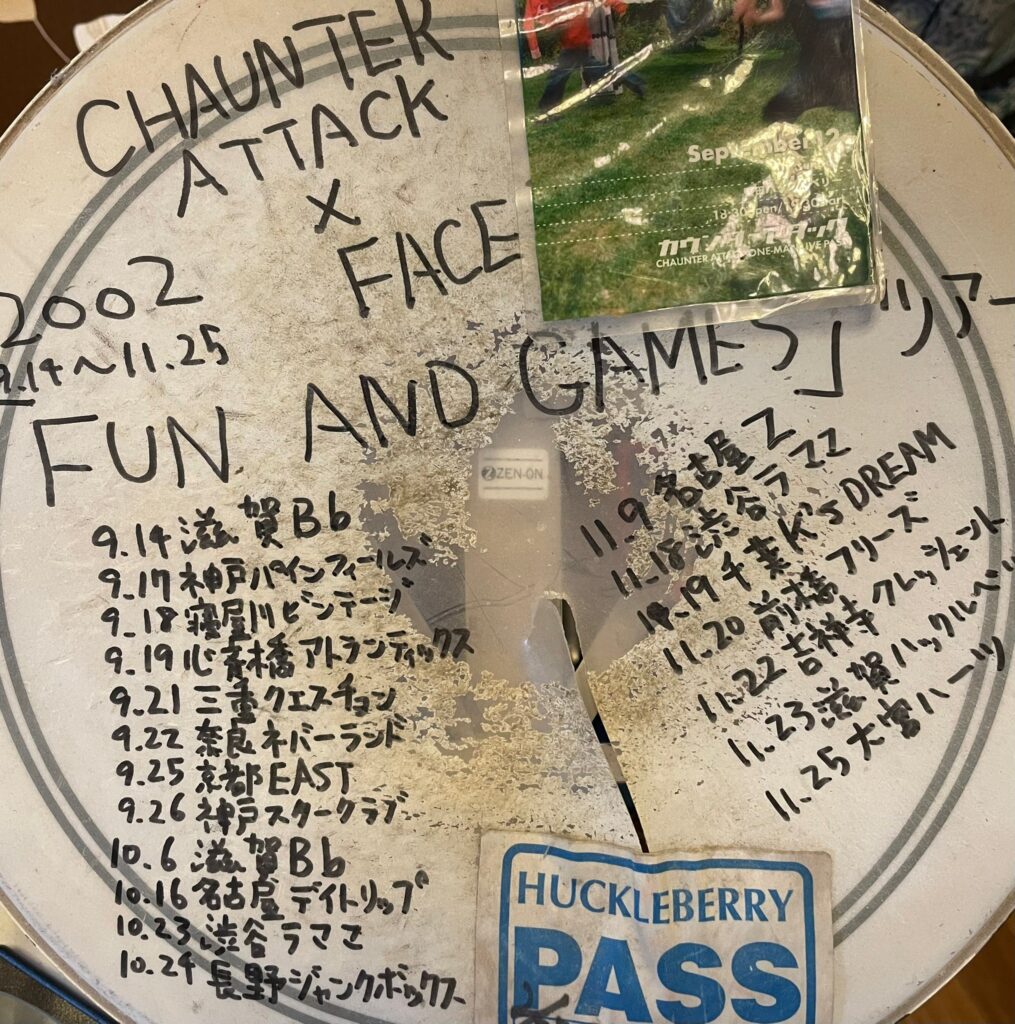 CHAUNTER
ATTACK
×
FACE
2002
9.14〜11.25
FUN AND GAMES」ツアー
September 12
18:30open/19:30start
カウンターアタック
CHAUNTER ATTACK ONE-MAN LIVE PASS
ZEN-ON
9.14 滋賀Bb
9.17 神戸パインフィールズ
9.18 寝屋川ビンテージ
9.19 心斎橋アトランティックス
9.21 三重クエスチョン
9.22 奈良ネバーランド
9.25 京都EAST
9.26 神戸スタークラブ
10.6 滋賀Bb
10.16 名古屋デイトリップ
10.23 渋谷ラママ
10.24 長野ジャンクボックス
11.9 名古屋Z
11.18 渋谷ラママ
11.19 千葉K'sDREAM
11.20 前橋フリーズ
11.22 吉祥寺クレッシェント
11.23 滋賀ハックルベリ
11.25 大宮ハーツ
HUCKLEBERRY
PASS